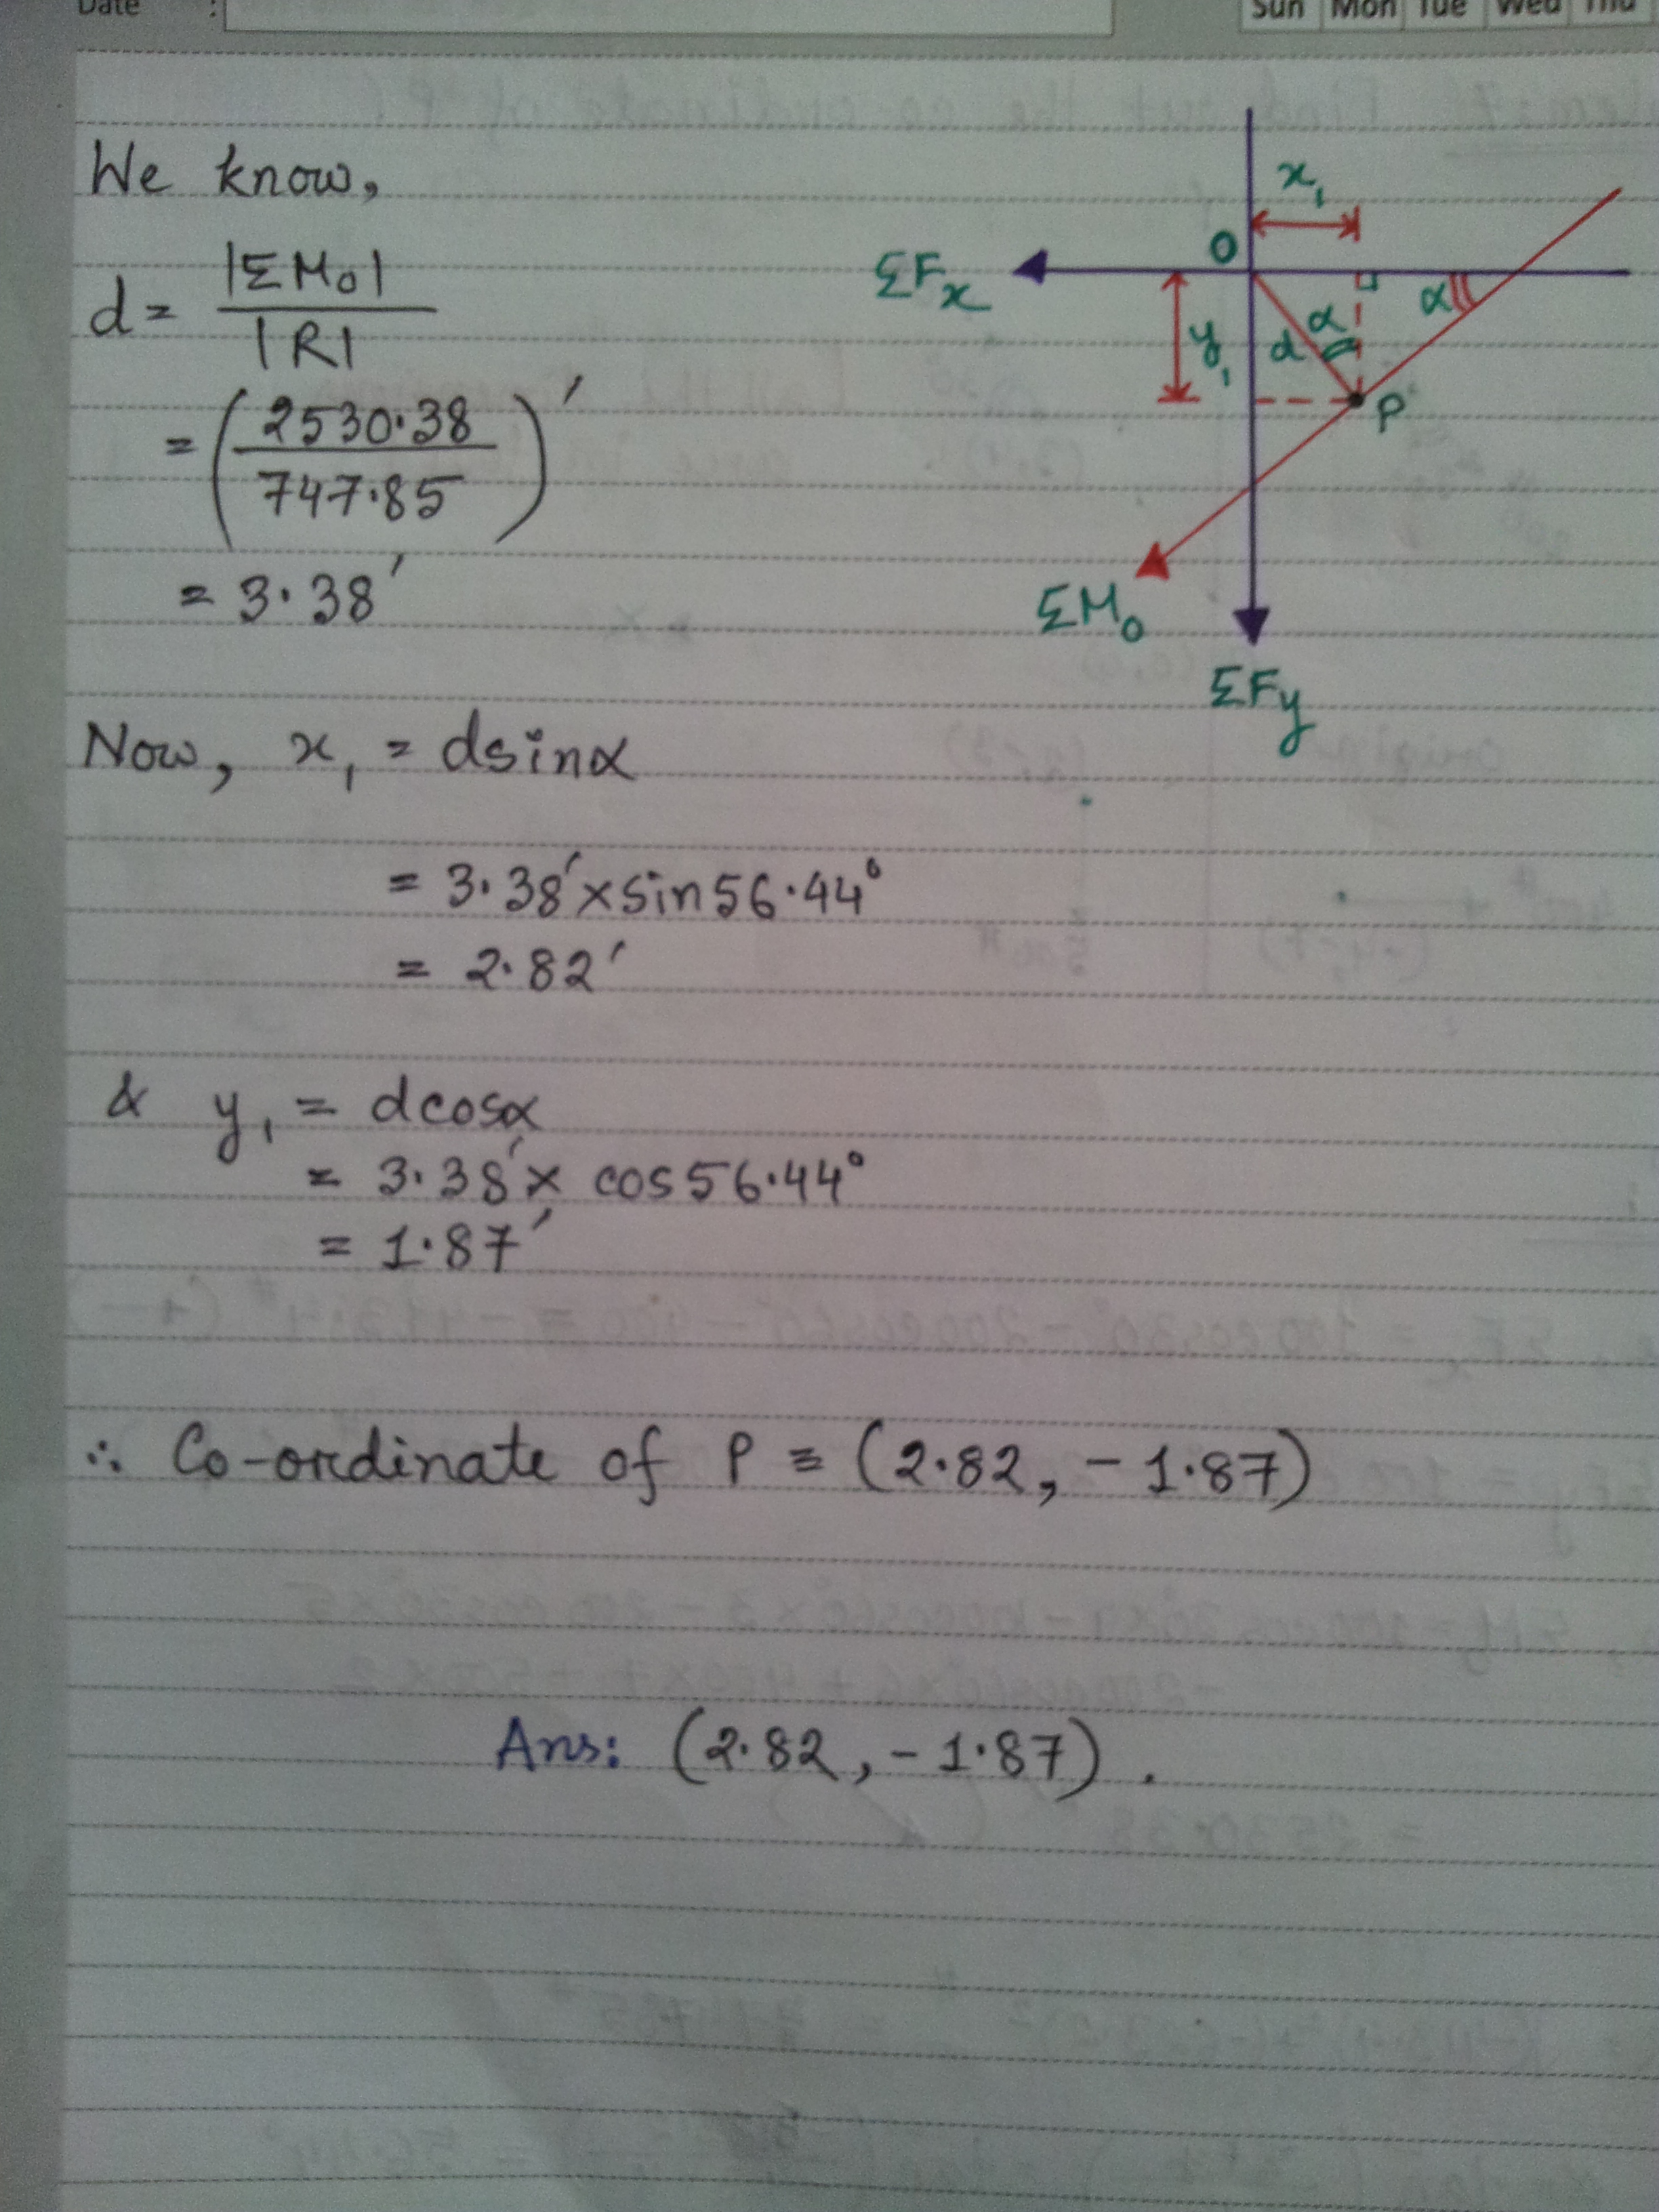 Date :
Sun Mon Tue Wed Thu
We know,
d = |ΣM₀| / |R|
= (2530.38 / 747.85)′
= 3.38′
x₁
O
ΣFx
y₁
d
α
α
P
ΣM₀
ΣFy
Now, x₁ = dsinα
= 3.38′ × sin56.44°
= 2.82′
& y₁ = dcosα
= 3.38′ × cos56.44°
= 1.87′
∴ Co-ordinate of P ≡ (2.82, -1.87)
Ans: (2.82, -1.87).